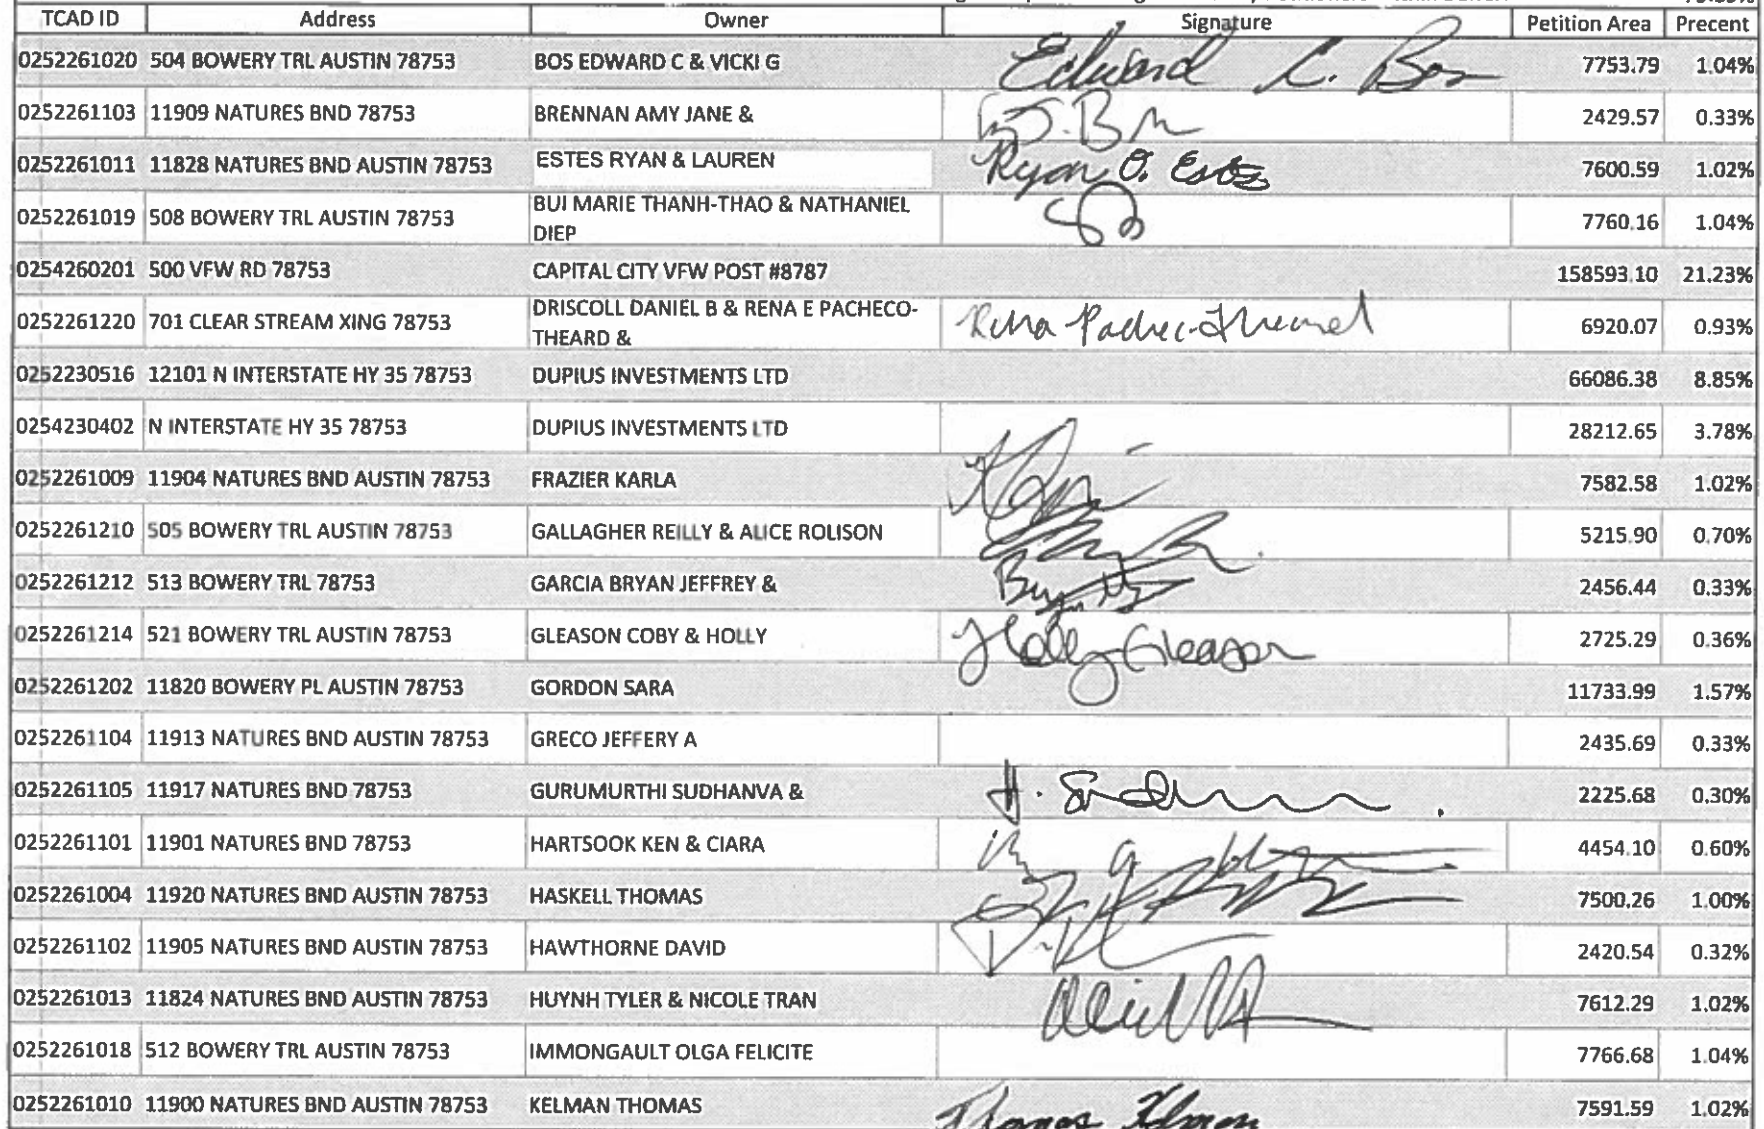 TCAD ID Address Owner Signature Petition Area Precent
0252261020 504 BOWERY TRL AUSTIN 78753 BOS EDWARD C & VICKI G Edward C. Bos 7753.79 1.04%
0252261103 11909 NATURES BND 78753 BRENNAN AMY JANE & 2429.57 0.33%
0252261011 11828 NATURES BND AUSTIN 78753 ESTES RYAN & LAUREN Ryan O. Estes 7600.59 1.02%
0252261019 508 BOWERY TRL AUSTIN 78753 BUI MARIE THANH-THAO & NATHANIEL
DIEP 7760.16 1.04%
0254260201 500 VFW RD 78753 CAPITAL CITY VFW POST #8787 158593.10 21.23%
0252261220 701 CLEAR STREAM XING 78753 DRISCOLL DANIEL B & RENA E PACHECO-
THEARD & Rena Pacheco-Theard 6920.07 0.93%
0252230516 12101 N INTERSTATE HY 35 78753 DUPIUS INVESTMENTS LTD 66086.38 8.85%
0254230402 N INTERSTATE HY 35 78753 DUPIUS INVESTMENTS LTD 28212.65 3.78%
0252261009 11904 NATURES BND AUSTIN 78753 FRAZIER KARLA 7582.58 1.02%
0252261210 505 BOWERY TRL AUSTIN 78753 GALLAGHER REILLY & ALICE ROLISON 5215.90 0.70%
0252261212 513 BOWERY TRL 78753 GARCIA BRYAN JEFFREY & 2456.44 0.33%
0252261214 521 BOWERY TRL AUSTIN 78753 GLEASON COBY & HOLLY Holly Gleason 2725.29 0.36%
0252261202 11820 BOWERY PL AUSTIN 78753 GORDON SARA 11733.99 1.57%
0252261104 11913 NATURES BND AUSTIN 78753 GRECO JEFFERY A 2435.69 0.33%
0252261105 11917 NATURES BND 78753 GURUMURTHI SUDHANVA & 2225.68 0.30%
0252261101 11901 NATURES BND 78753 HARTSOOK KEN & CIARA 4454.10 0.60%
0252261004 11920 NATURES BND AUSTIN 78753 HASKELL THOMAS 7500.26 1.00%
0252261102 11905 NATURES BND AUSTIN 78753 HAWTHORNE DAVID 2420.54 0.32%
0252261013 11824 NATURES BND AUSTIN 78753 HUYNH TYLER & NICOLE TRAN 7612.29 1.02%
0252261018 512 BOWERY TRL AUSTIN 78753 IMMONGAULT OLGA FELICITE 7766.68 1.04%
0252261010 11900 NATURES BND AUSTIN 78753 KELMAN THOMAS Thomas Kelman 7591.59 1.02%